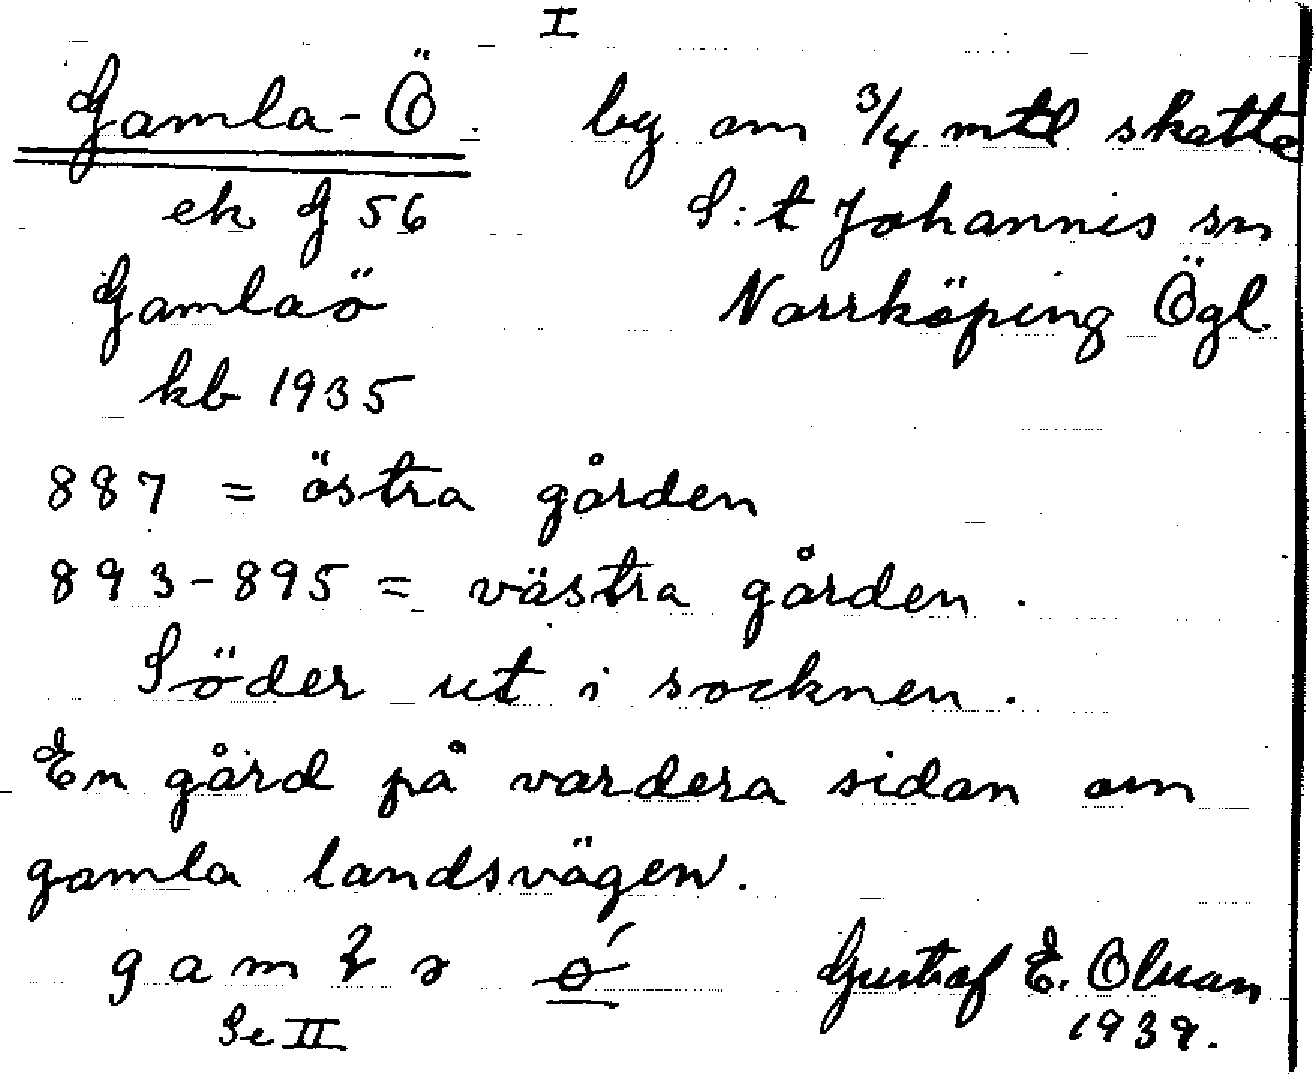 I
Gamla-Ö. by om 3/4 mtl skatte
ek G 56 S:t Johannis sn
Gamlaö Norrköping Ögl.
kb 1935
887 = östra gården
893-895 = västra gården.
Söder ut i socknen.
En gård på vardera sidan om
gamla landsvägen.
gam Gustaf E. Olsson
Se II 1939.